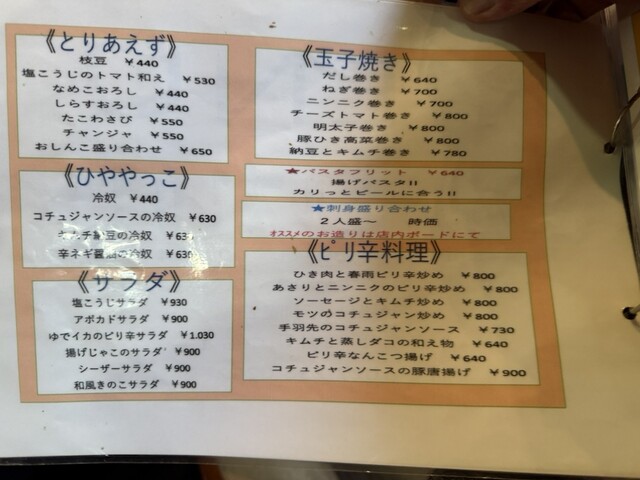 《とりあえず》
枝豆 ￥440
塩こうじのトマト和え ￥530
なめこおろし ￥440
しらすおろし ￥440
たこわさび ￥550
チャンジャ ￥550
おしんこ盛り合わせ ￥650
《ひややっこ》
冷奴 ￥440
コチュジャンソースの冷奴 ￥630
キムチ納豆の冷奴 ￥630
辛ネギ醤油の冷奴 ￥630
《サラダ》
塩こうじサラダ ￥930
アボカドサラダ ￥900
ゆでイカのピリ辛サラダ ￥1.030
揚げじゃこのサラダ ￥900
シーザーサラダ ￥900
和風きのこサラダ ￥900
《玉子焼き》
だし巻き ￥640
ねぎ巻き ￥700
ニンニク巻き ￥700
チーズトマト巻き ￥800
明太子巻き ￥800
豚ひき高菜巻き ￥800
納豆とキムチ巻き ￥780
★パスタフリット ￥640
揚げパスタ!!
カリっとビールに合う!!
★刺身盛り合わせ
２人盛～ 時価
ｵｽｽﾒのお造りは店内ボードにて
《ピリ辛料理》
ひき肉と春雨ピリ辛炒め ￥800
あさりとニンニクのピリ辛炒め ￥800
ソーセージとキムチ炒め ￥800
モツのコチュジャン炒め ￥800
手羽先のコチュジャンソース ￥730
キムチと蒸しダコの和え物 ￥640
ピリ辛なんこつ揚げ ￥640
コチュジャンソースの豚唐揚げ ￥900